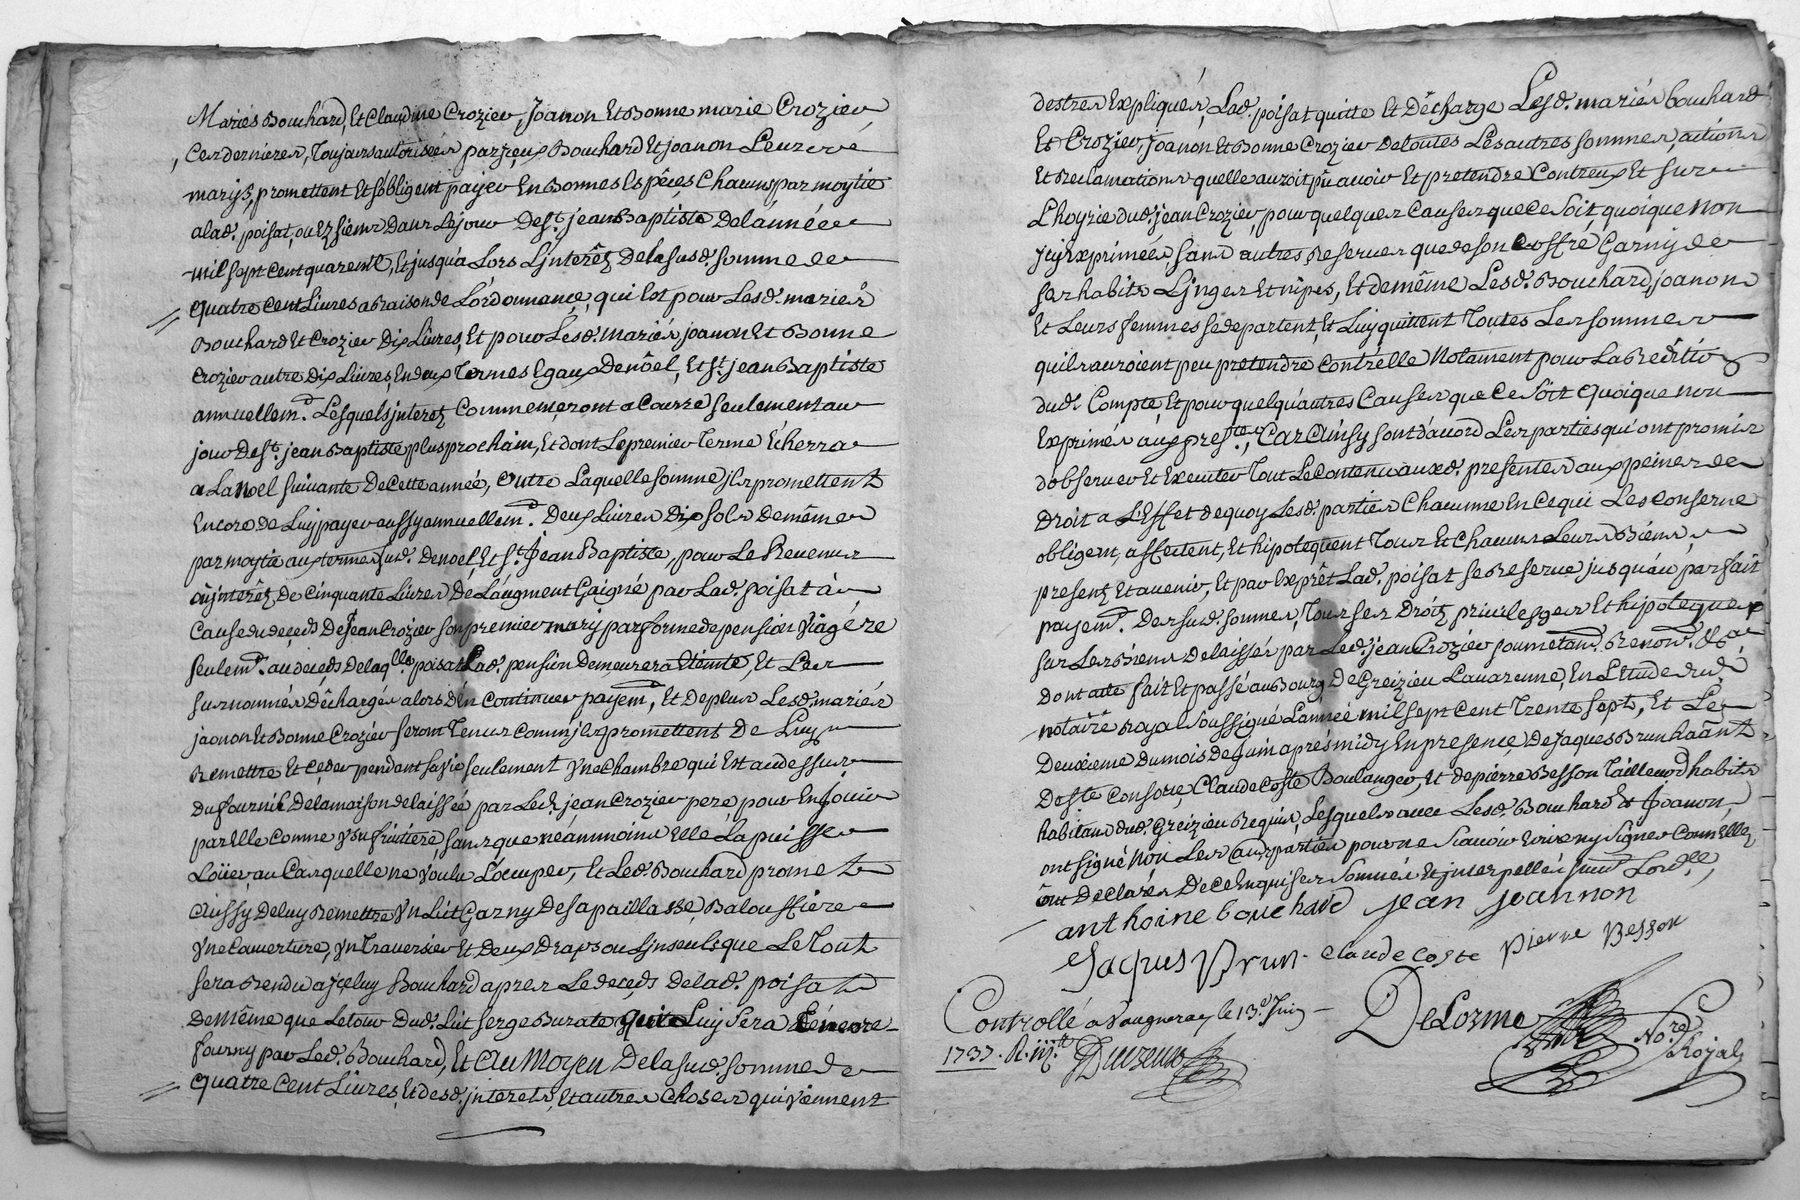 Mariés Bouchard, Et Claudine Crozier, Joanon Et Bonne marie Crozier,
Ces dernieres, Toujours autorisées par iceux Bouchard Et joanon Leurs
marys, promettent Et s'obligent payer En Bonnes Espêces Chacuns par moytié
a lad. poisat, ou Ez siens Dans Le jour De st. jean Baptiste De l'année
mil sept cent quarente, Et jusqu'a Lors L'jnterêz De la susd. somme de
quatre cent Livres a Raison de L'ordonnance, qui Est pour Lesd. mariés
Bouchard Et Crozier Dix Livres, Et pour Lesd. mariés joanon Et Bonne
Crozier autre Dix Livres, En deux Termes Egaux De nôel, Et st. jean Baptiste
annuellemt. Lesquels jnterez Commençeront a Courre seulement au
jour De st. jean Baptiste plus prochain, Et dont Le premier Terme Echerra
a La noel suivante De Cette année, outre Laquelle somme jls promettent
Encore de Luy payer aussy annuellemt. Deux Livres Dix sols De même
par moytié aux termes susd. De noel, Et st. Jean Baptiste, pour Le Revenu
ou jnterêz de Cinquante Livres De L'augment Gaigné par Lad. poisat a
Cause du deçeds De Jean Crozier son premier mary par forme de pension Viagére
seulemt. au deçeds De laqlle. poisat Lad. pension Demeurera Eteinte, Et Les
surnommés Déchargés alors D'en Continuer payemt., Et De plus Lesd. mariés
jaonon Et Bonne Crozier seront Tenus comm'jls promettent De Luy
Remettre Et çeder pendant sa vie seulement Vne Chambre qui Est au dessus
Du fournil De la maison delaissée par Led. jean Crozier pere, pour En Jouir
par Elle Comme Vsufruitiere, sans que néanmoins Elle La puisse
Loüer, au Cas qu'elle ne Voulu L'occuper, Et Led. Bouchard promet
Aussy De luy Remettre Vn Lit Garny De sa paillasse, Balouffiére
Vne Couverture, Vn Traversier Et Deux Draps ou Linseuls que Le Tout
sera Rendu a Jçeluy Bouchard apres Le deçeds De lad. poisat
De même que Le tour Dud. Lit serge Burate qui Luy sera Encore
fourny par Led. Bouchard, Et Au Moyen De la sud. somme de
quatre Cent Livres, Et desd. jnterets, Et autres Choses qui Viennent
d'estres Expliqués, Lad. poisat quitte Et Décharge Lesd. mariés bouchard
Et Crozier, Joanon Et Bonne Crozier De toutes Les autres sommes, actions
Et Reclamations qu'elle auroit pû avoir Et pretendre Contr'eux Et sur
L'hoyrie dud. jean Crozier, pour quelques Causes que Ce soit quoique non
Jcy Exprimées sans autres Reserves que de son Coffre Garny de
ses habits Linges Et nipes, Et de même Lesd. Bouchard, joanon
Et Leurs femmes se departent, Et Luy quittent Toutes Les sommes
qu'ils auroient peu pretendre Contr'elle Notament pour La Reditio
dud. Compte, Et pour quelqu'autres Causes que Ce soit quoique non
Exprimés aux prestes., Car Ainsy sont d'acord Les parties qui ont promis
d'observer Et Executer Tout Le Contenu aux d. presentes aux peines de
Droit a L'Effet de quoy Lesd. parties Chacunne En Ce qui Les Conserne
obligent, affectent, Et hipotequent Tous Et Chacuns Leurs Biens
presenz Et avenir, Et par Exprêt Lad. poisat se Reserve jusqu'au parfait
payemt. Des sud. sommes, Tous ses Droits privileges Et hipoteques
sur Les Biens Delaissés par Led. jean Crozier soumetant. Renont. &a
Dont acte fait Et passé au Bourg De Greizieu Lavarenne, En L'Etude du d.
notaire Royal soussigné L'année mil sept Cent Trente sept, Et Le
Deuxieme Du mois De juin aprés midy En presençe De Jaques Brun haânt
De ste Consorce, Claude Coste Boulanger, Et de pierre Besson Tailleur d'habits
habitans dud. Greizieu Requis, Lesquels avec Lesd. Bouchard Et Joanon
ont signé non Les Au. parties pour ne sçavoir Ecrire ny signer Comm'Elles
ônt Declarés De Ce Enquises sommées Et jnterpellés suivt. L'ordce.
anthoine bouchard jean joannon
Jaques Brun. Claude Coste Pierre Besson
Controllé a Vaugneray le 13e. Juin
DeLorme Nore. Royal
1737. R. iij.tt